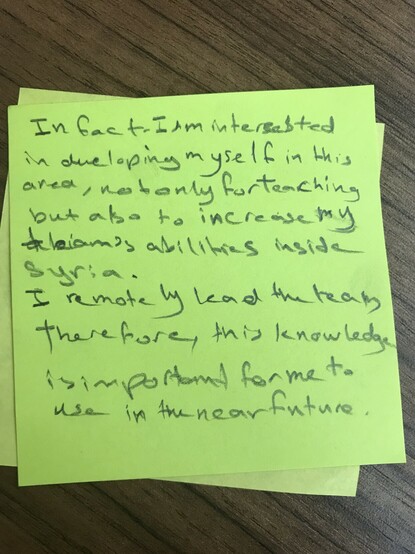 In fact, I'm interested
in dueloping myself in this
area, not only for teaching
but also to increase my
team's abilities inside
Syria.
I remotely lead the team
therefore, this knowledge
is important for me to
use in the near future.